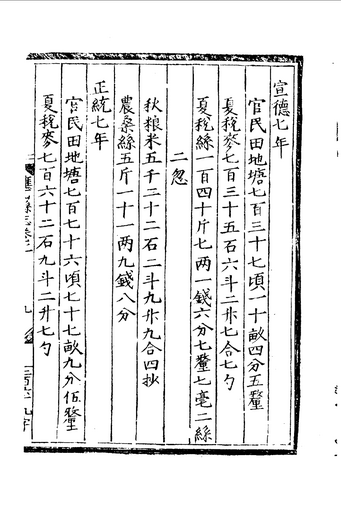 宣德七年
官民田地塘七百三十七頃一十畝四分五釐
夏稅麥七百三十五石六斗二升七合七勺
夏稅絲一百四十斤七兩一錢六分七釐七毫二絲
二忽
秋粮米五千二十二石二斗九升九合四抄
農桑絲五斤一十一兩九錢八分
正統七年
官民田地塘七百七十六頃七十七畝九分伍釐
夏稅麥七百六十二石九斗二升七勺